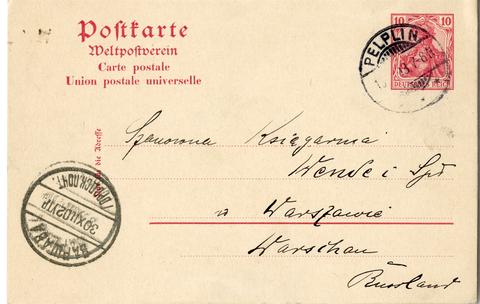 Postkarte
Weltpostverein
Carte postale
Union postale universelle
10
10
DEUTSCHES REICH
PELPLIN
7-8N
Nur für die Adresse
Szanowna Księgarnia
Wende i Sp
w Warszawie
Warschau
Russland
ВАРШАВА
30 XII 02